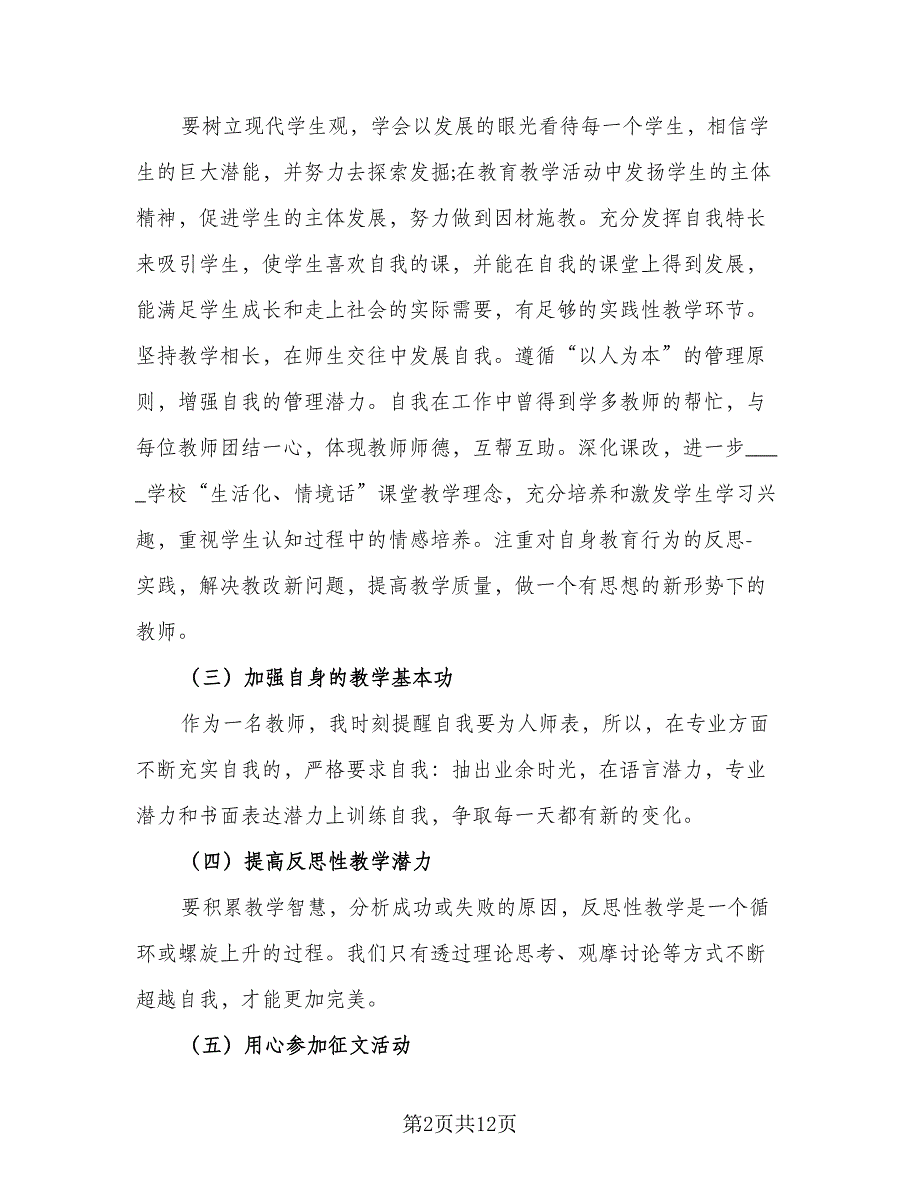 要树立现代学生观，学会以发展的眼光看待每一个学生，相信学
生的巨大潜能，并努力去探索发掘;在教育教学活动中发扬学生的主体
精神，促进学生的主体发展，努力做到因材施教。充分发挥自我特长
来吸引学生，使学生喜欢自我的课，并能在自我的课堂上得到发展，
能满足学生成长和走上社会的实际需要，有足够的实践性教学环节。
坚持教学相长，在师生交往中发展自我。遵循“以人为本”的管理原
则，增强自我的管理潜力。自我在工作中曾得到学多教师的帮忙，与
每位教师团结一心，体现教师师德，互帮互助。深化课改，进一步___
_学校“生活化、情境话”课堂教学理念，充分培养和激发学生学习兴
趣，重视学生认知过程中的情感培养。注重对自身教育行为的反思-
实践，解决教改新问题，提高教学质量，做一个有思想的新形势下的
教师。
（三）加强自身的教学基本功
作为一名教师，我时刻提醒自我要为人师表，所以，在专业方面
不断充实自我的，严格要求自我：抽出业余时光，在语言潜力，专业
潜力和书面表达潜力上训练自我，争取每一天都有新的变化。
（四）提高反思性教学潜力
要积累教学智慧，分析成功或失败的原因，反思性教学是一个循
环或螺旋上升的过程。我们只有透过理论思考、观摩讨论等方式不断
超越自我，才能更加完美。
（五）用心参加征文活动
第2页共12页